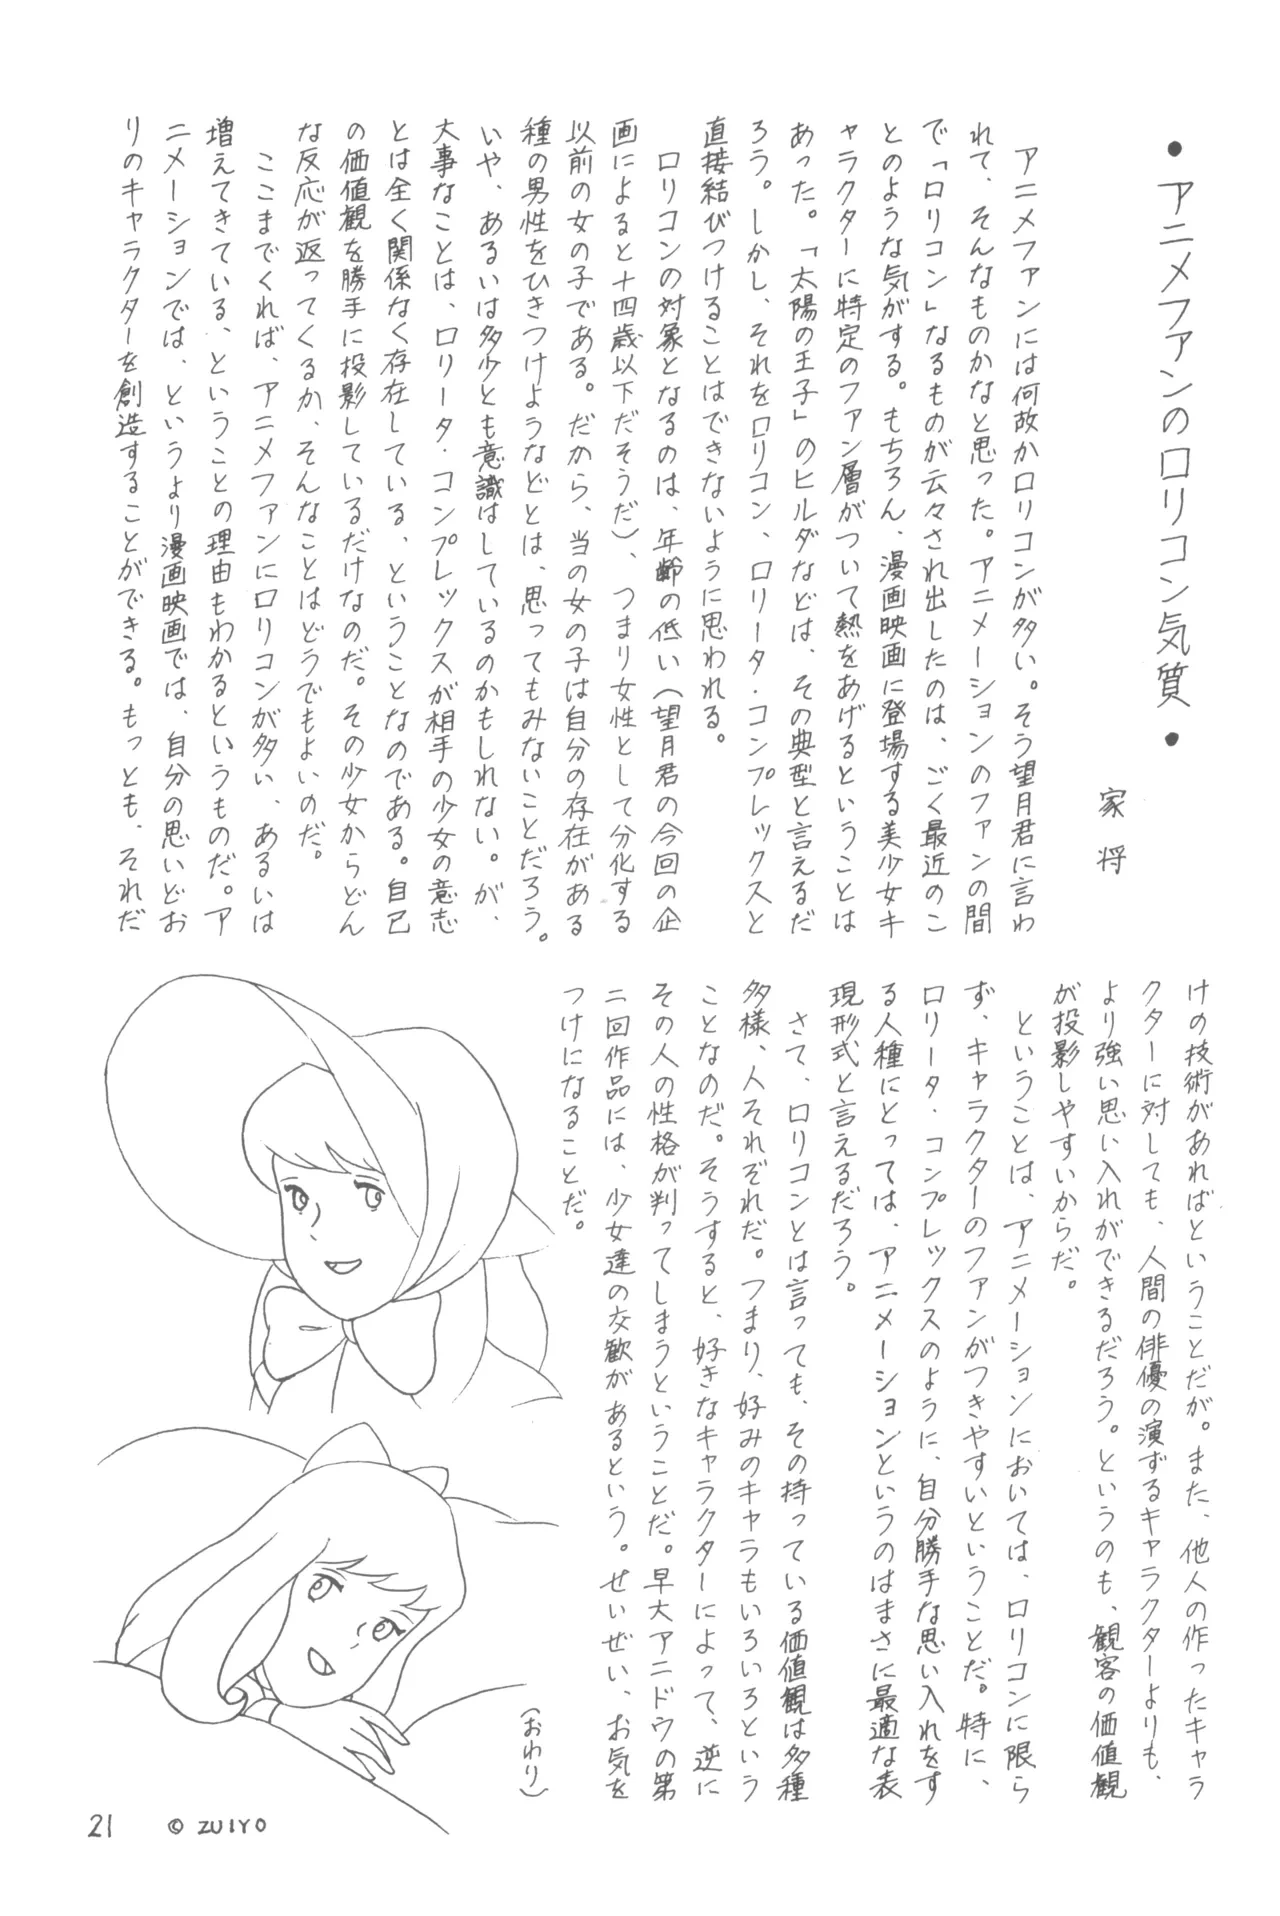 ・アニメファンのロリコン気質・
家将
アニメファンには何故かロリコンが多い。そう望月君に言わ
れて、そんなものかなと思った。アニメーションのファンの間
で「ロリコン」なるものが云々され出したのは、ごく最近のこ
とのような気がする。もちろん、漫画映画に登場する美少女キ
ャラクターに特定のファン層がついて熱をあげるということは
あった。「太陽の王子」のヒルダなどは、その典型と言えるだ
ろう。しかし、それをロリコン、ロリータ・コンプレックスと
直接結びつけることはできないように思われる。
ロリコンの対象となるのは、年齢の低い（望月君の今回の企
画によると十四歳以下だそうだ）、つまり女性として分化する
以前の女の子である。だから、当の女の子は自分の存在がある
種の男性をひきつけようなどとは、思ってもみないことだろう。
いや、あるいは多少とも意識はしているのかもしれない。が、
大事なことは、ロリータ・コンプレックスが相手の少女の意志
とは全く関係なく存在している、ということなのである。自己
の価値観を勝手に投影しているだけなのだ。その少女からどん
な反応が返ってくるか、そんなことはどうでもよいのだ。
ここまでくれば、アニメファンにロリコンが多い、あるいは
増えてきている、ということの理由もわかるというものだ。ア
ニメーションでは、というより漫画映画では、自分の思いどお
りのキャラクターを創造することができる。もっとも、それだ
けの技術があればということだが。また、他人の作ったキャラ
クターに対しても、人間の俳優の演ずるキャラクターよりも、
より強い思い入れができるだろう。というのも、観客の価値観
が投影しやすいからだ。
ということは、アニメーションにおいては、ロリコンに限ら
ず、キャラクターのファンがつきやすいということだ。特に、
ロリータ・コンプレックスのように、自分勝手な思い入れをす
る人種にとっては、アニメーションというのはまさに最適な表
現形式と言えるだろう。
さて、ロリコンとは言っても、その持っている価値観は多種
多様、人それぞれだ。つまり、好みのキャラもいろいろという
ことなのだ。そうすると、好きなキャラクターによって、逆に
その人の性格が判ってしまうということだ。早大アニドウの第
二回作品には、少女達の交歓があるという。せいぜい、お気を
つけになることだ。
（おわり）
21
© ZUIYO